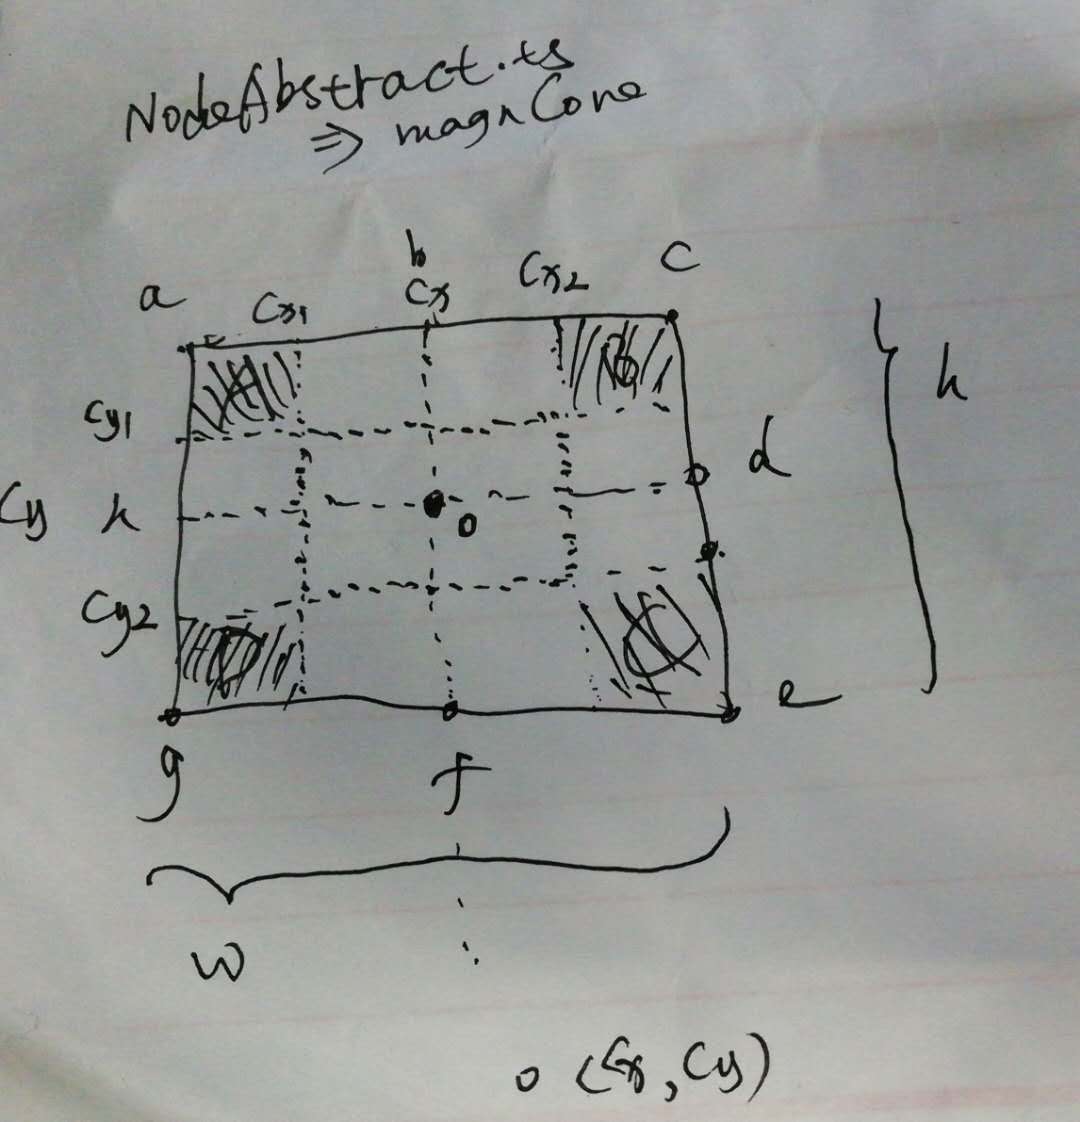 NodeAbstract.ts
⇒ magnCore
b
a Cx1 Cx Cx2 c
Cy1
h
Cy h
o
d
Cy2
e
g f
w
o (Cx, Cy)